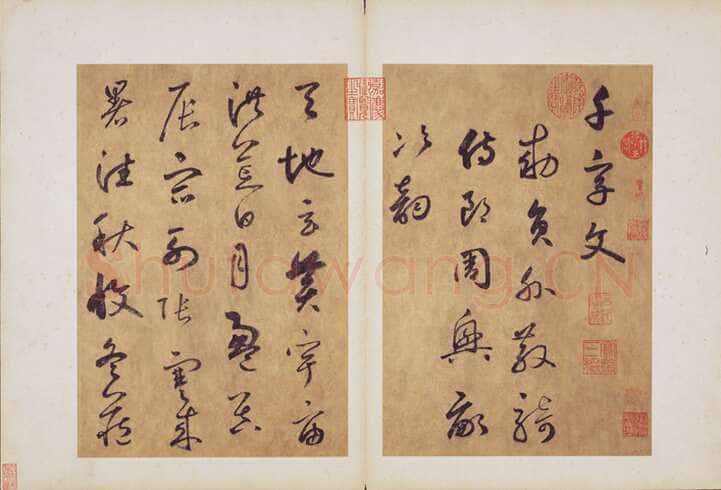 千字文
勅員外散騎
侍郎周興嗣
次韻
天地玄黃宇宙
洪荒日月盈昃
辰宿列張寒來
暑往秋收冬藏
Shufawang.CN